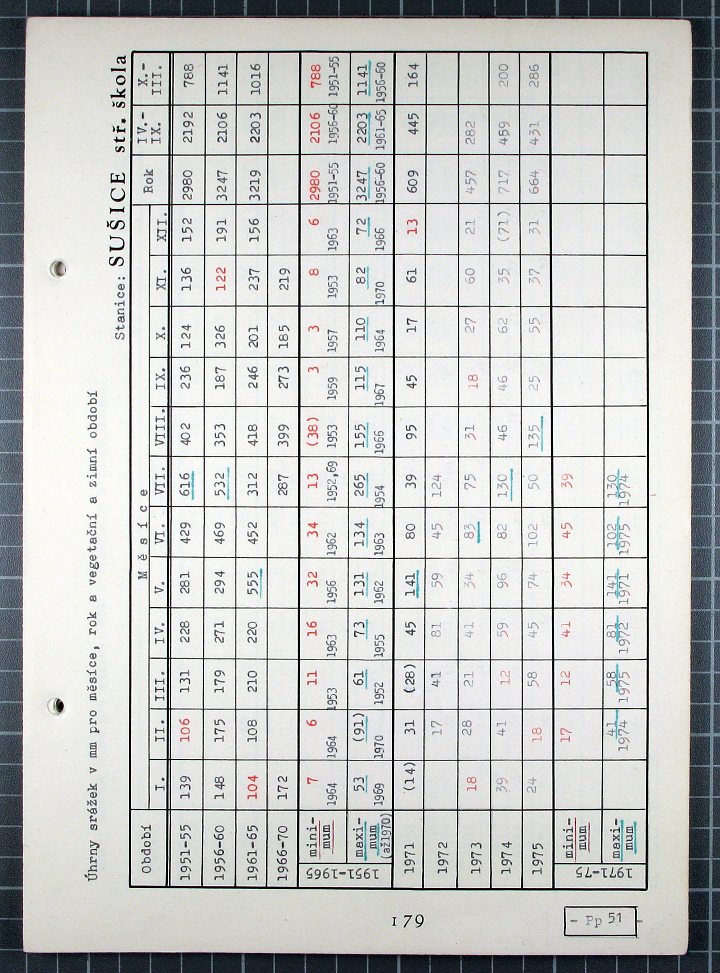 Úhrny srážek v mm pro měsíce, rok a vegetační a zimní období
Stanice: SUŠICE stř. škola
Období Měsíce Rok IV.–IX. X.–III.
I. II. III. IV. V. VI. VII. VIII. IX. X. XI. XII.
1951–55 139 106 131 228 281 429 616 402 236 124 136 152 2980 2192 788
1956–60 148 175 179 271 294 469 532 353 187 326 122 191 3247 2106 1141
1961–65 104 108 210 220 555 452 312 418 246 201 237 156 3219 2203 1016
1966–70 172 287 399 273 185 219
1951–1965
mini–mum 7 6 11 16 32 34 13 (38) 3 3 8 6 2980 2106 788
1964 1964 1953 1963 1956 1962 1952,69 1953 1959 1957 1953 1963 1951–55 1956–60 1951–55
maxi–mum 53 (91) 61 73 131 134 265 155 115 110 82 72 3247 2203 1141
(až1970) 1969 1970 1952 1955 1962 1963 1954 1966 1967 1964 1970 1966 1956–60 1961–65 1956–60
1971 (14) 31 (28) 45 141 80 39 95 45 17 61 13 609 445 164
1972 17 41 81 59 45 124
1973 18 28 21 41 34 83 75 31 18 27 60 21 457 282
1974 39 41 12 59 96 82 130 46 46 62 35 (71) 717 459 200
1975 24 18 58 45 74 102 50 135 25 55 37 31 664 431 286
1971–75
mini–mum 17 12 41 34 45 39
maxi–mum 41 58 81 141 102 130
1974 1975 1972 1971 1975 1974
179
– Pp 51 –